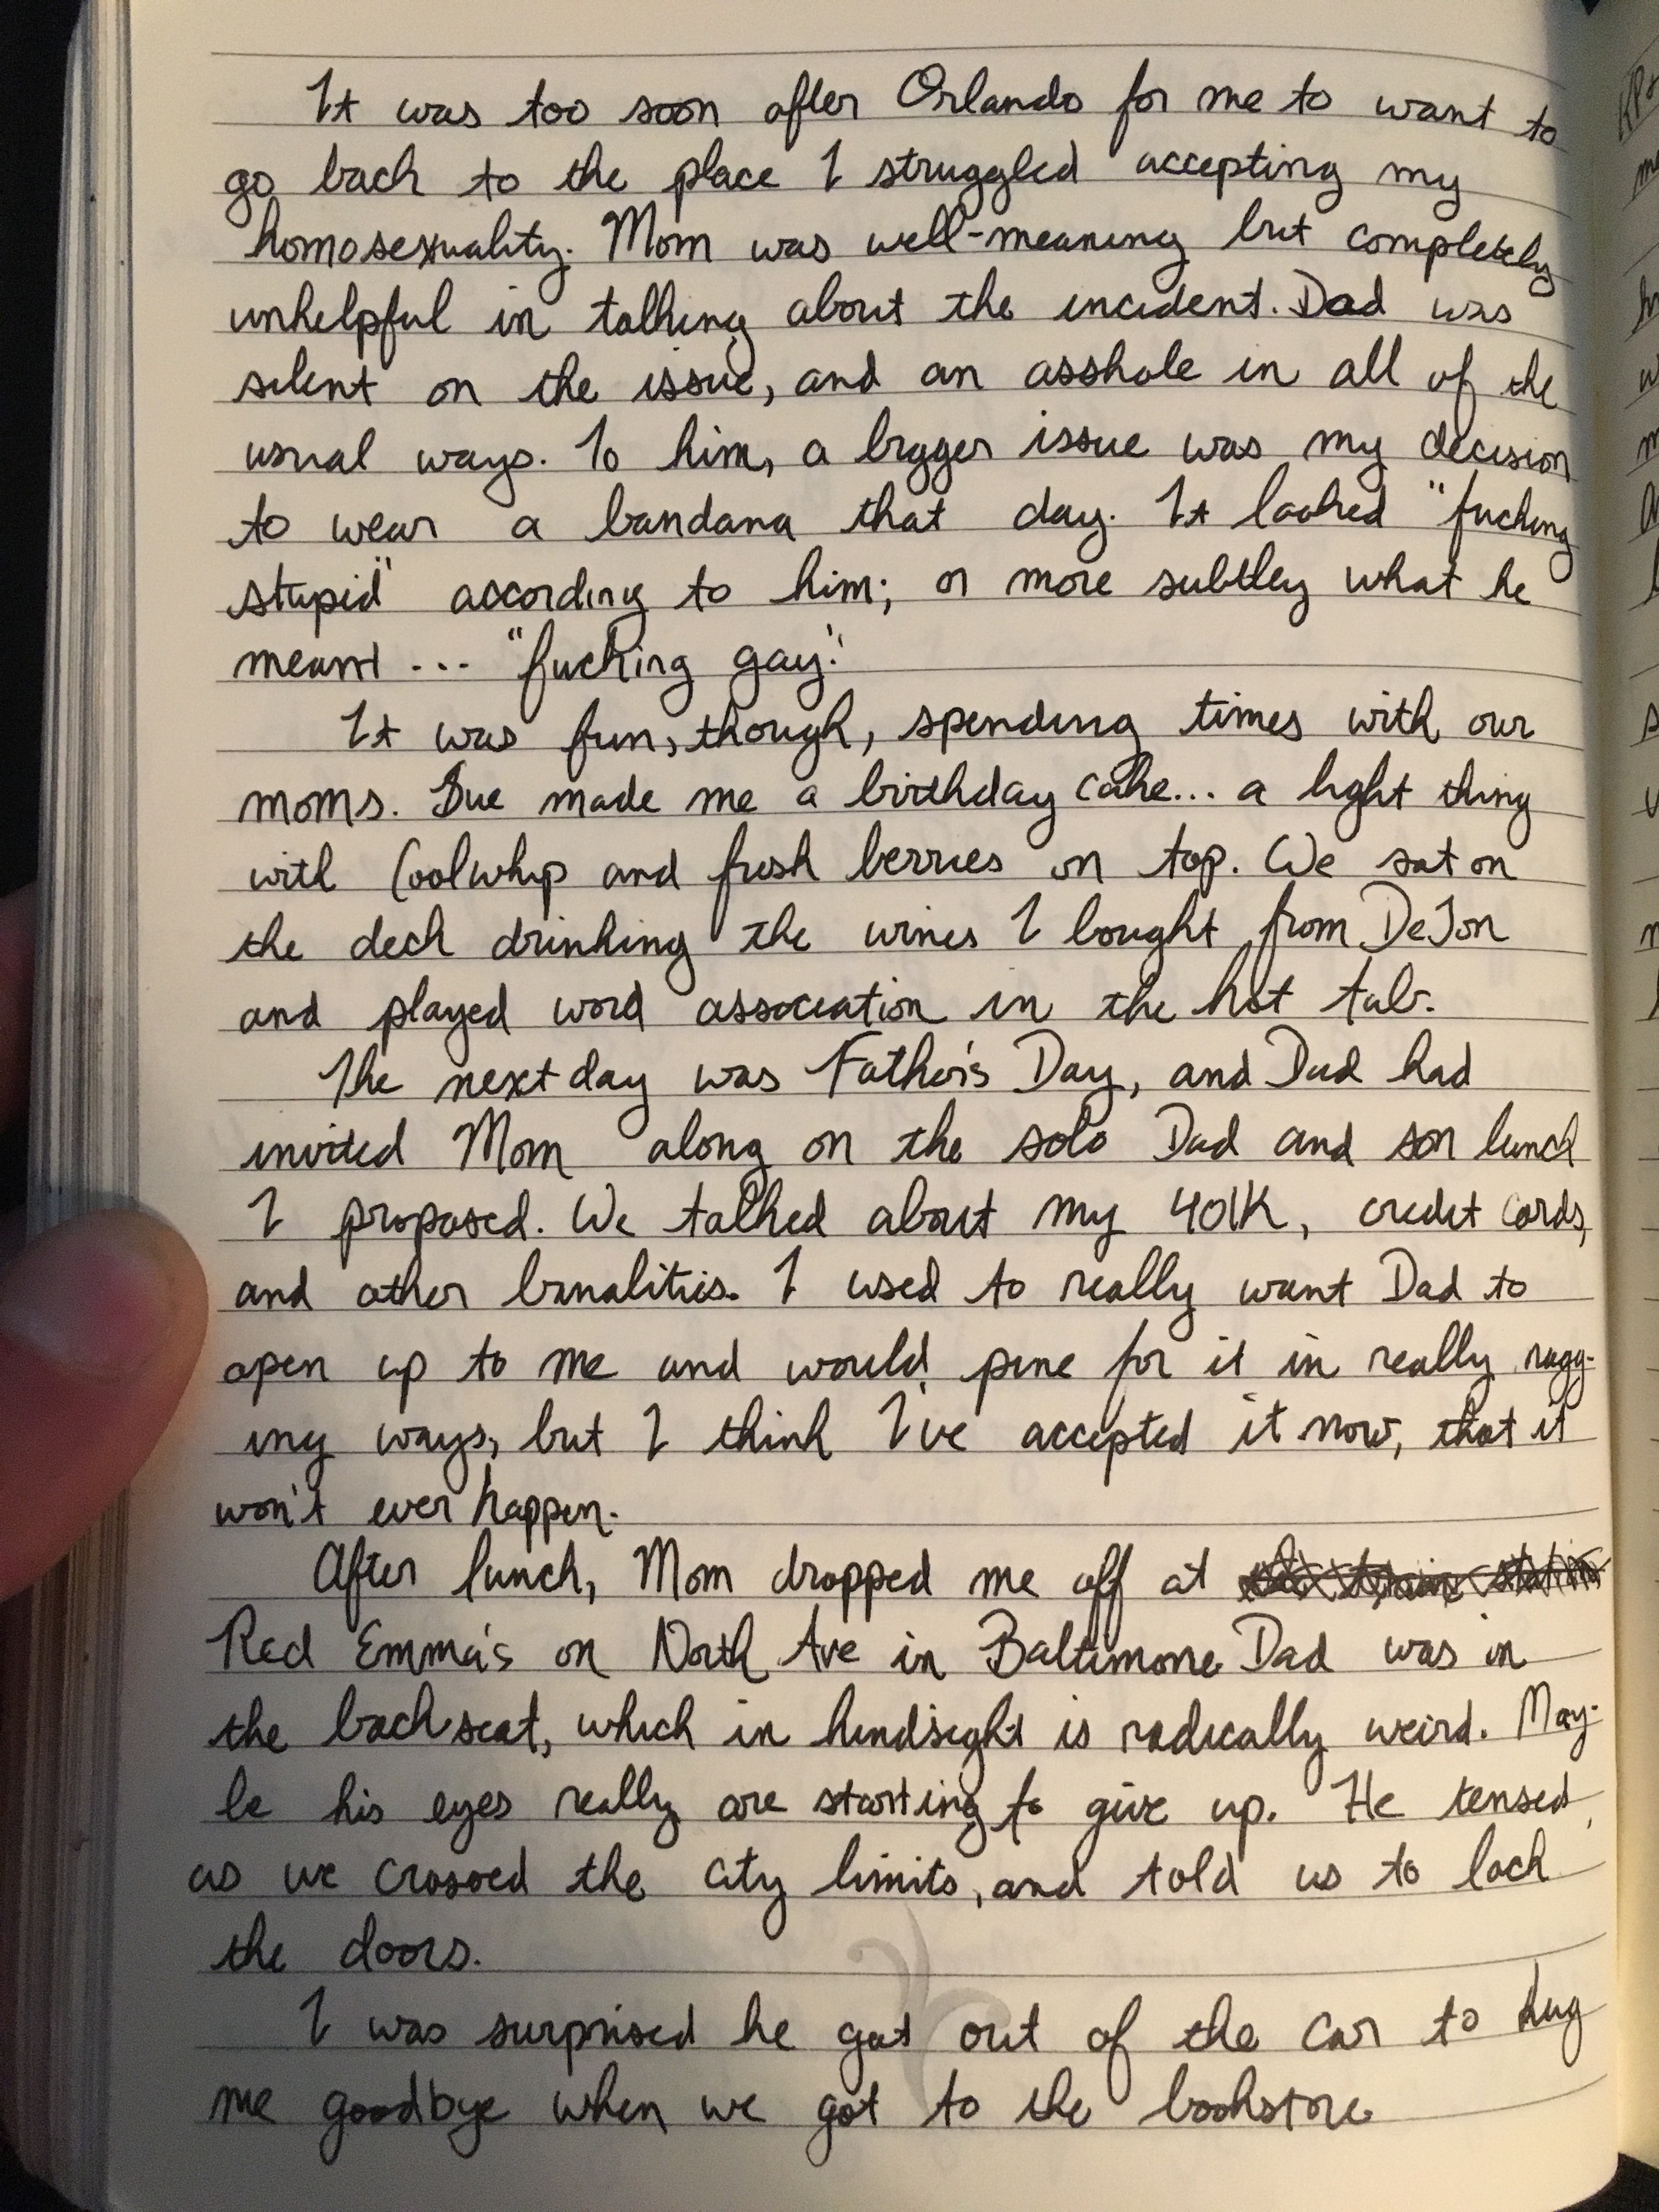 It was too soon after Orlando for me to want to
go back to the place I struggled accepting my
homosexuality. Mom was well-meaning but completely
unhelpful in talking about the incident. Dad was
silent on the issue, and an asshole in all of the
usual ways. To him, a bigger issue was my decision
to wear a bandana that day. It looked "fucking
stupid" according to him; or more subtley what he
meant ... "fucking gay."
It was fun, though, spending times with our
moms. Sue made me a birthday cake... a light thing
with Coolwhip and fresh berries on top. We sat on
the deck drinking the wines I bought from DeJon
and played word association in the hot tub.
The next day was Father's Day, and Dad had
invited Mom along on the solo Dad and son lunch
I proposed. We talked about my 401K, credit cards,
and other banalities. I used to really want Dad to
open up to me and would pine for it in really nagg-
ing ways, but I think I've accepted it now, that it
won't ever happen.
After lunch, Mom dropped me off at
Red Emma's on North Ave in Baltimore Dad was in
the backseat, which in hindsight is radically weird. May-
be his eyes really are starting to give up. He tensed
as we crossed the city limits, and told us to lock
the doors.
I was surprised he got out of the car to hug
me goodbye when we got to the bookstore